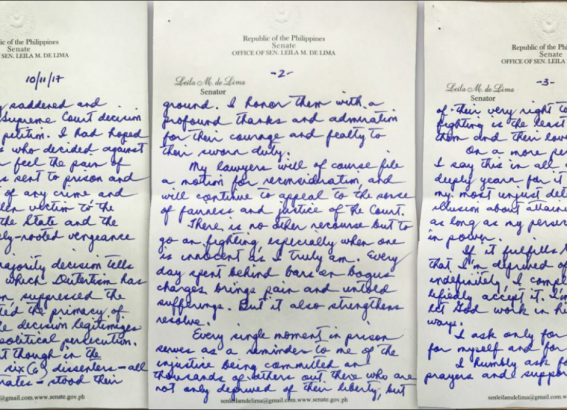 ic of the Philippines
Senate
OF SEN. LEILA M. DE LIMA
10/11/17
saddened and
Supreme Court decision
petition. I had hoped
who decided against
feel the pain of
sent to prison and
of any crime and
victim to the
the State and the
ly-rooted vengeance
majority decision tells
which Distortion has
suppressed the
ted the primacy of
decision legitimizes
political persecution.
t though in the
six (6) dissenters - all
rates - stood their
@gmail.com www.senate.gov.ph
Republic of the Philippines
Senate
OFFICE OF SEN. LEILA M. DE LIMA
-2-
Leila M. de Lima
Senator
ground. I honor them with a
profound thanks and admiration
for their courage and fealty to
their sworn duty.
My lawyers will of course file
a motion for reconsideration, and
will continue to appeal to the sense
of fairness and justice of the Court.
There is no other recourse but to
go on fighting, especially when one
is innocent as I truly am. Every
day spent behind bars on bogus
charges brings pain and untold
sufferings. But it also strengthens
resolve.
Every single moment in prison
serves as a reminder to me of the
injustice being committed on
thousands of others out there who are
not only deprived of their liberty, but
senleilamdelima@gmail.com www.senate.gov.ph
Republic of the
Sena
OFFICE OF SEN. LE
-3-
Leila M. de Lima
Senator
of their very right to
fighting is the least
them and their love
On a more per
I say this in all
deeply yearn for it
my most unjust det
illusion about attain
as long as my perse
in power.
If it fulfills
that I'm deprived of
indefinitely, I compl
accept it. I'm
let God work in hi
ways.
I ask only for
for myself and for
I humbly ask fo
prayers and suppor
senleilamdelima@gmail.com